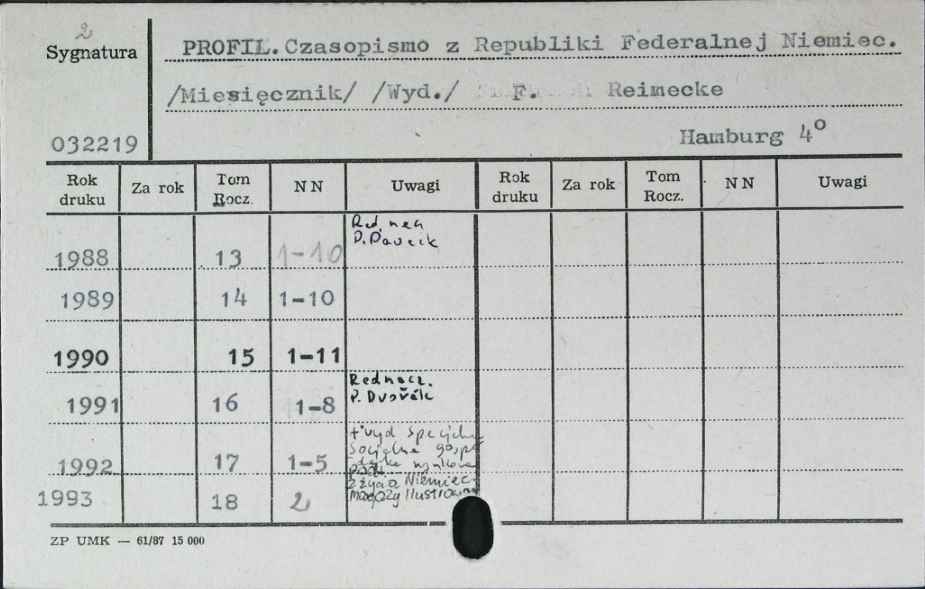 2
Sygnatura
PROFIL. Czasopismo z Republiki Federalnej Niemiec.
/Miesięcznik/ /Wyd./ F. Reimecke
032219
Hamburg 4°
Rok druku Za rok Tom Rocz. NN Uwagi Rok druku Za rok Tom Rocz. NN Uwagi
Red. nacz
P. Pavcik
1988 13 1-10
1989 14 1-10
1990 15 1-11
Red nacz.
P. Dvořák
1991 16 1-8
+ wyd specjalne
socjalna gosp
1992 17 1-5
z życia Niemiec
1993 18 2
ZP UMK — 61/87 15 000